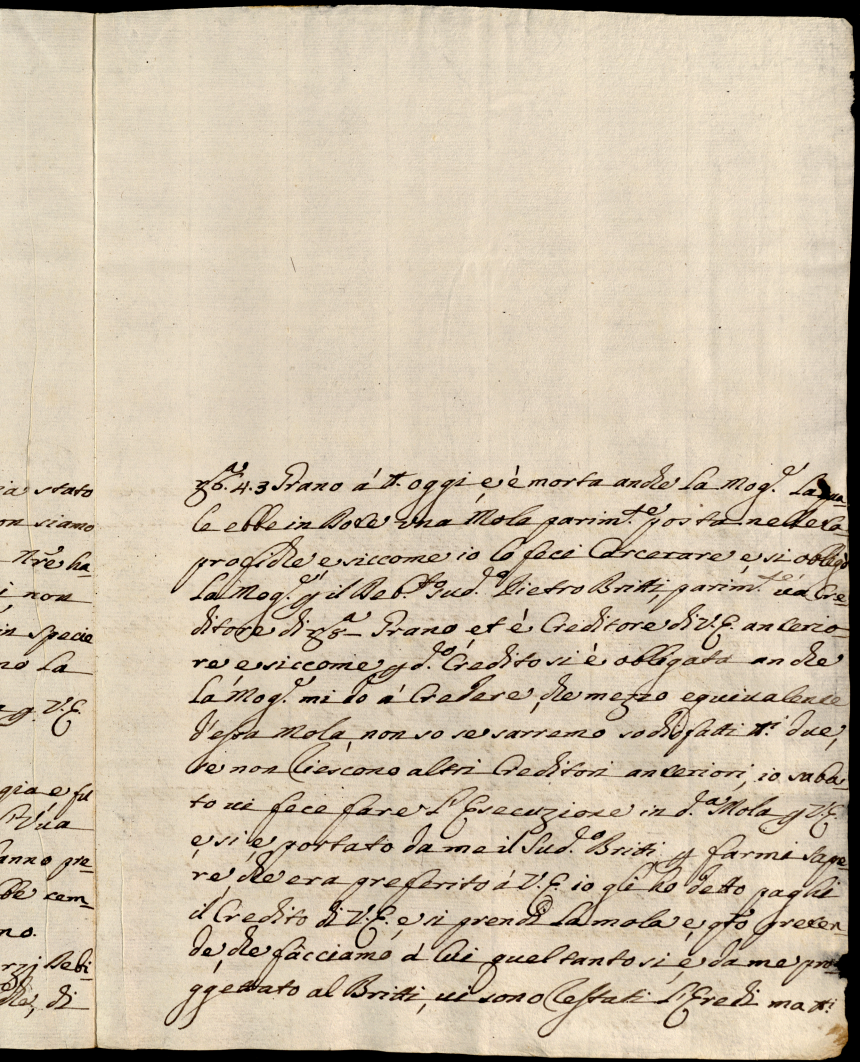 ia stato
on siamo
Nre ha-
i non
in specie
no La
V.E.
gia e fu
Vua
anno pre-
bbe cem-
no.
rzj Rebi-
di
4.3 Grano á oggi e è morta anche La Mog.e La qua-
le ebbe in Dote una Mola parim.te posta nelle La-
profidie e siccome io lo feci Carcerare, e si obligò
La Mog.e il Deb.to Sud.o Pietro Britti, parim.te Cre-
ditore di Grano et è Creditore di V.E. anterio-
re e siccome p d.o Credito si è obligata anche
La Mog.e mi dò á Credere, che mezzo equivalente
d'essa Mola, non so se sarremo sodisfatti due,
se non Riescono altri Creditori anteriori, io saba-
to ui fece fare L'Esecuzione in d.a Mola p V.E.
e si è portato da me il Sud.o Britti p farmi sape-
re, che era preferito á V.E. io gli ho detto paghi
il Credito di V.E. e si prendi La mola e qto preten-
de che facciamo á lui quel tanto si è da me pro-
ggettato al Britti, ui sono Restati L'Eredi ma